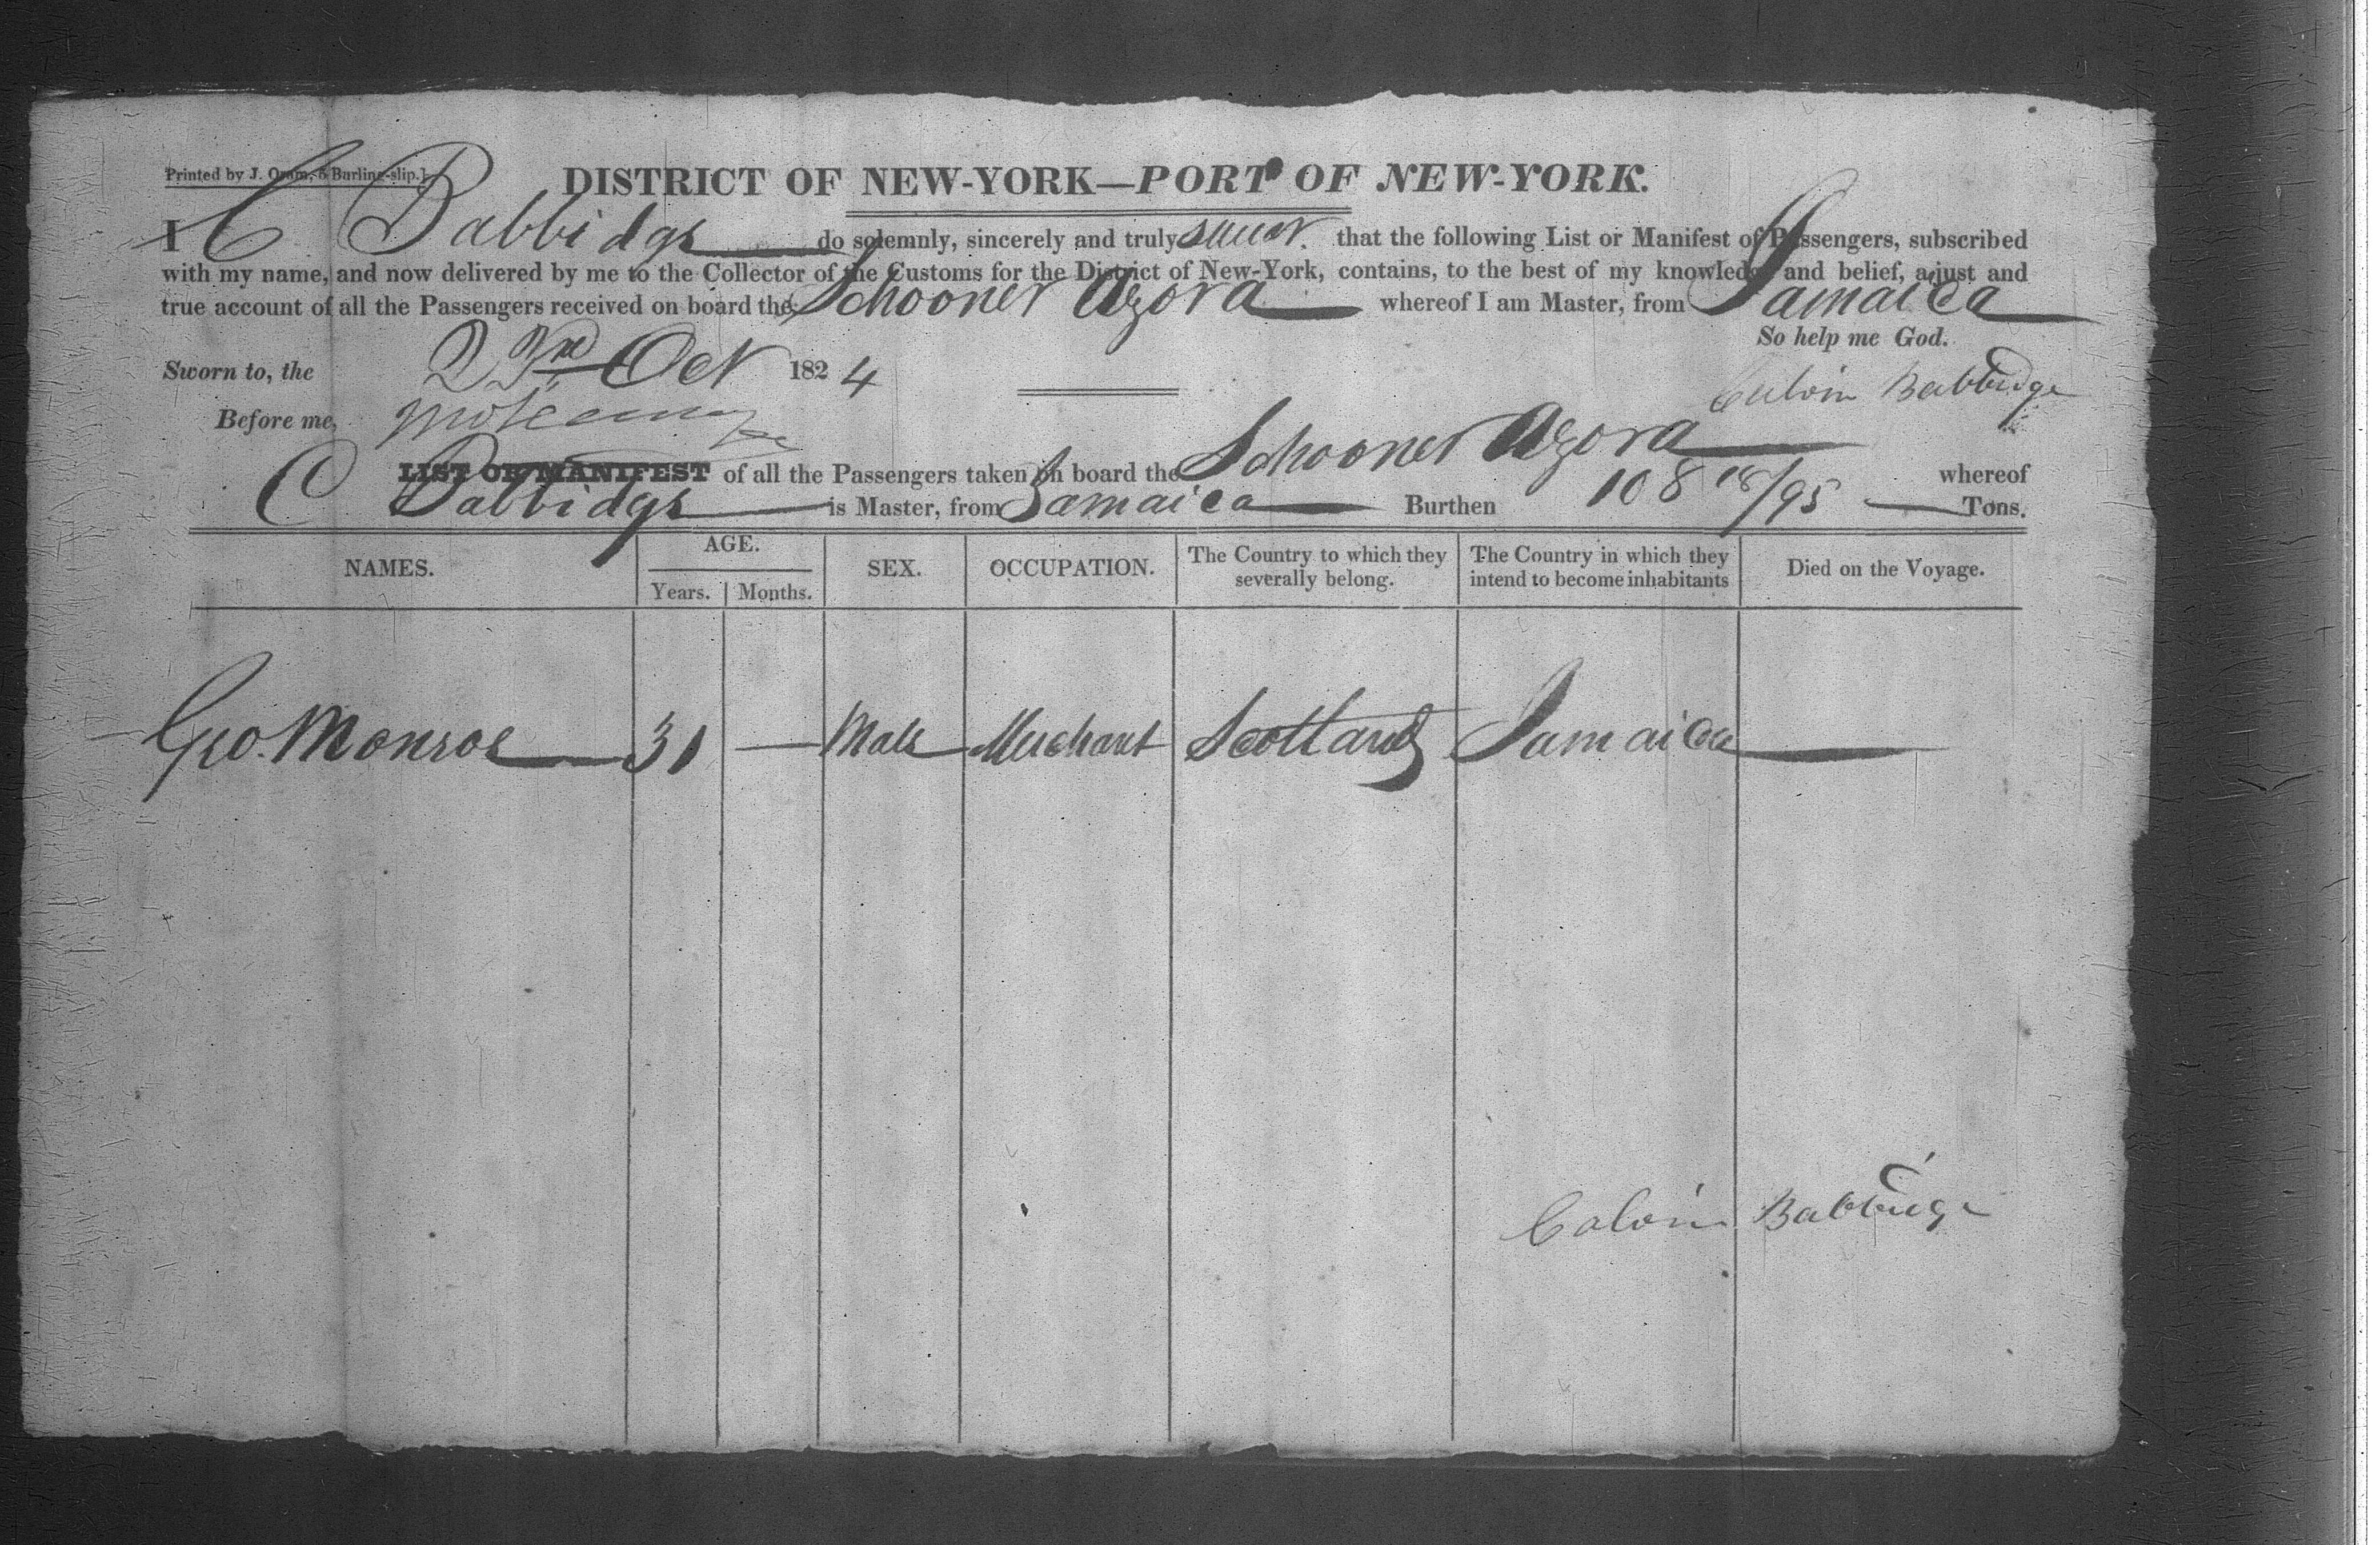 Printed by J. Oram, 5 Burling-slip.]
DISTRICT OF NEW-YORK—PORT OF NEW-YORK.
I C Babbidge do solemnly, sincerely and truly swear that the following List or Manifest of Passengers, subscribed
with my name, and now delivered by me to the Collector of the Customs for the District of New-York, contains, to the best of my knowledge and belief, a just and
true account of all the Passengers received on board the Schooner Azora whereof I am Master, from Jamaica
So help me God.
Sworn to, the 23rd Oct 1824
Calvin Babbidge
Before me,
LIST OR MANIFEST of all the Passengers taken on board the Schooner Azora whereof
C Babbidge is Master, from Jamaica Burthen 108 18/95 Tons.
NAMES. AGE. SEX. OCCUPATION. The Country to which they severally belong. The Country in which they intend to become inhabitants Died on the Voyage.
Years. Months.
Geo. Monroe 31 — Male Merchant Scotland Jamaica —
Calvin Babbidge